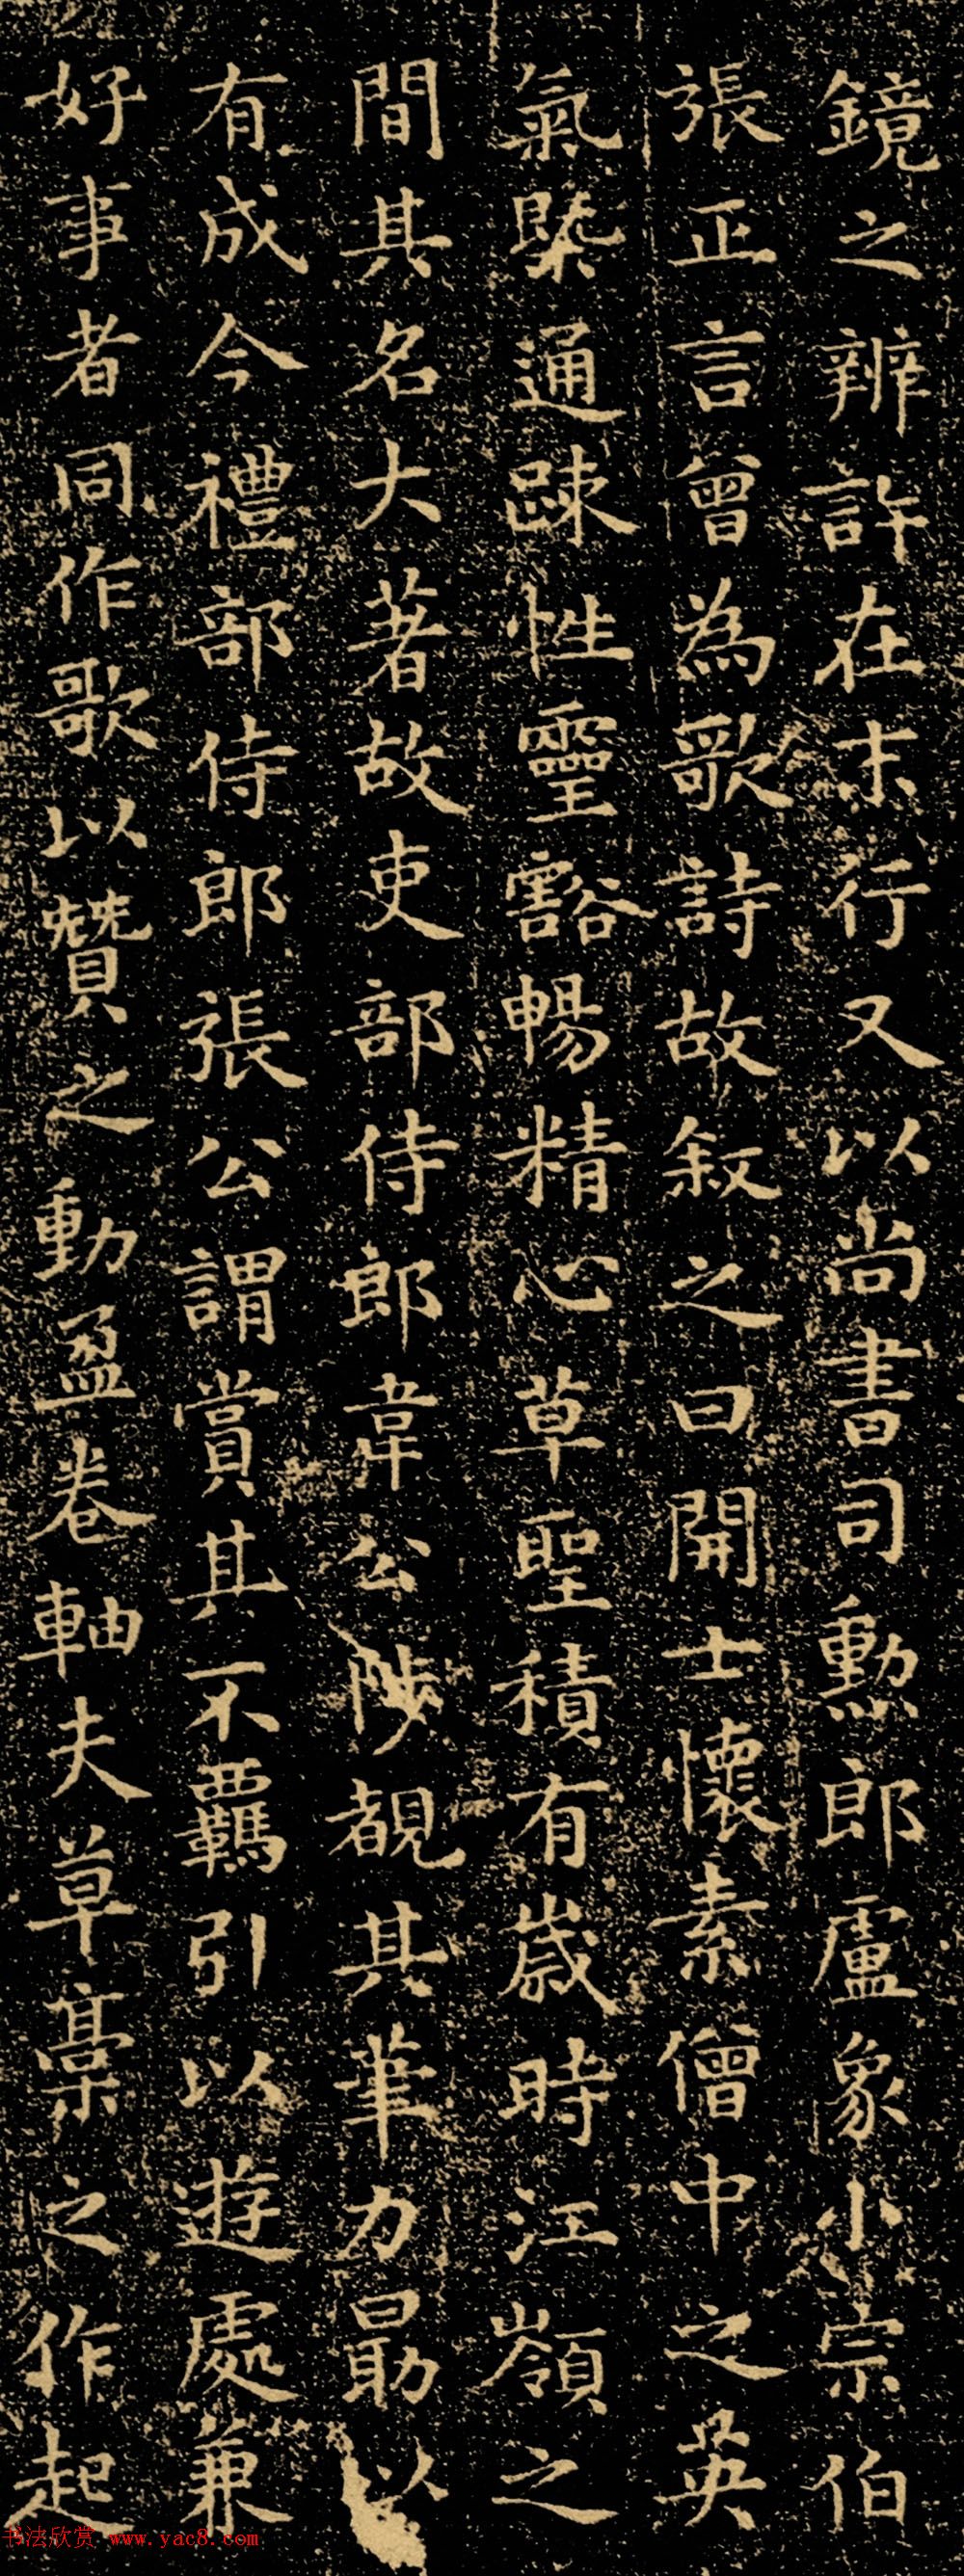 鏡之辨許在末行又以尚書司勳郎盧象小宗伯
張正言曾為歌詩故叙之曰開士懷素僧中之英
氣槩通疎性靈豁暢精心草聖積有歳時江嶺之
間其名大著故吏部侍郎韋公陟覩其筆力勗以
有成今禮部侍郎張公謂賞其不羈引以遊處兼
好事者同作歌以贊之動盈卷軸夫草藁之作起
书法欣赏 www.yac8.com